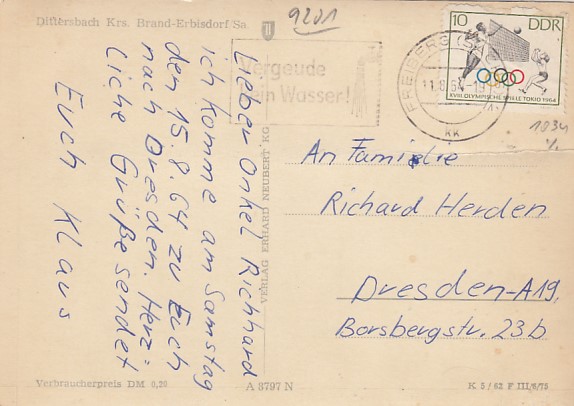 Dittersbach Krs. Brand-Erbisdorf/Sa.
9201
Lieber Onkel Richard
ich komme am Samstag
den 15.8.64 zu Euch
nach Dresden. Herz-
liche Grüße sendet
Euch Klaus
VERLAG ERHARD NEUBERT KG
Vergeude
kein Wasser!
FREIBERG (SACHS)
11.8.64-19
kk
10
DDR
XVIII. OLYMPISCHE SPIELE TOKIO 1964
1034
An Familie
Richard Herden
Dresden-A19,
Borsbergstr. 23b
Verbraucherpreis DM 0,20
A 3797 N
K 5/62 F III/6/75